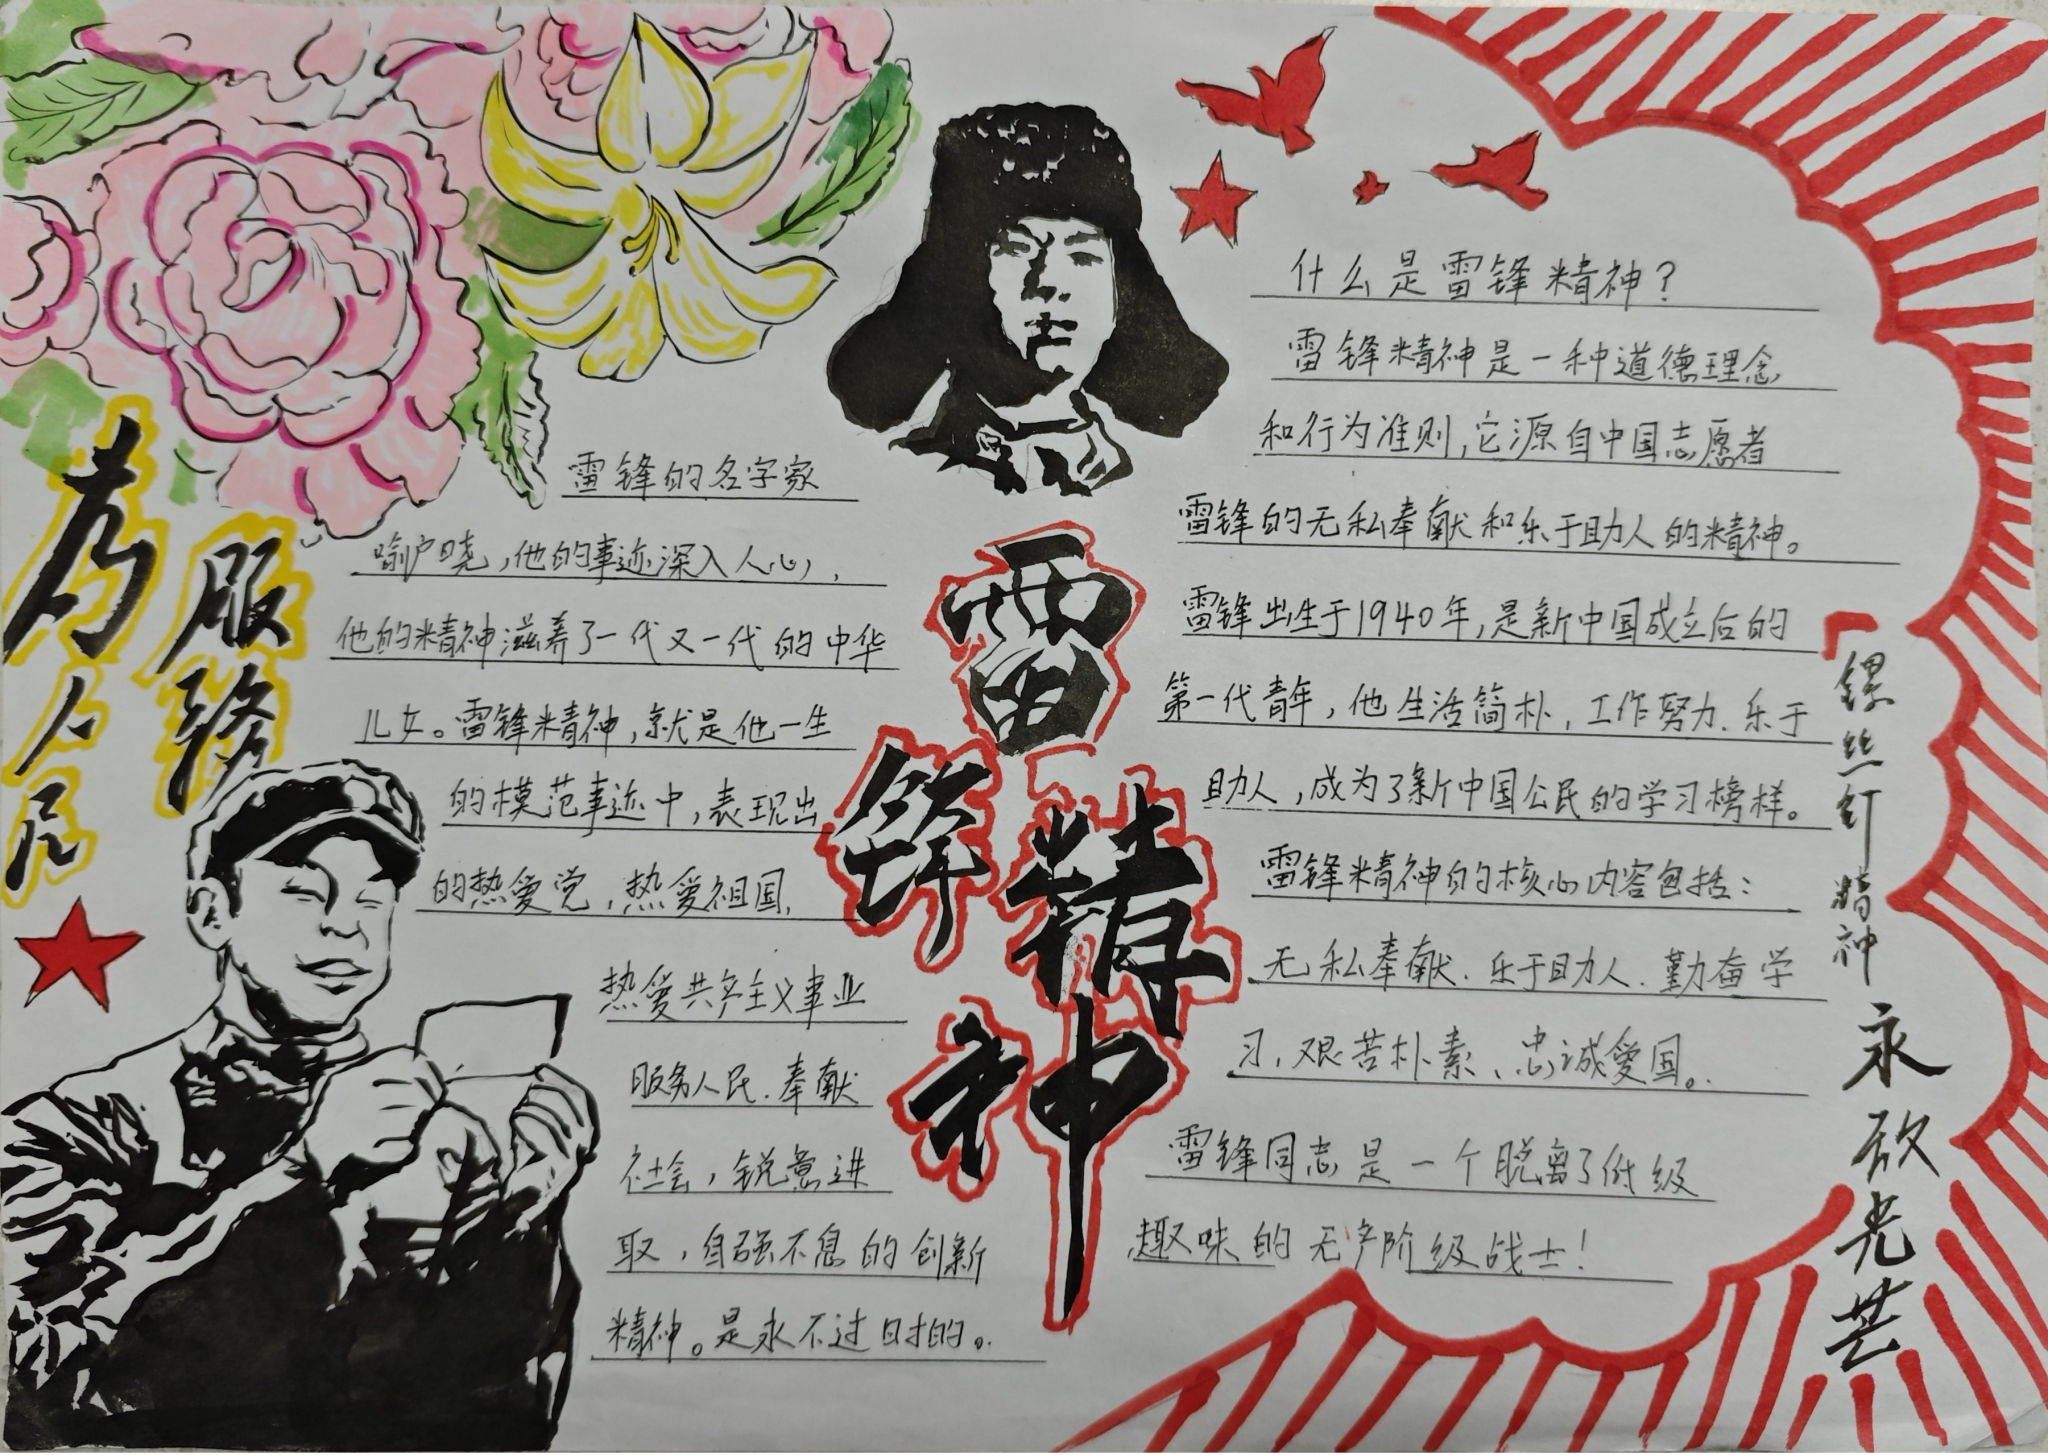 为人民
服務
雷锋的名字家
喻户晓，他的事迹深入人心，
他的精神滋养了一代又一代的中华
儿女。雷锋精神，就是他一生
的模范事迹中，表现出
的热爱党，热爱祖国，
热爱共产主义事业
服务人民、奉献
社会，锐意进
取，自强不息的创新
精神。是永不过时的。
雷
锋
精
神
什么是雷锋精神？
雷锋精神是一种道德理念
和行为准则，它源自中国志愿者
雷锋的无私奉献和乐于助人的精神。
雷锋出生于1940年，是新中国成立后的
第一代青年，他生活简朴，工作努力、乐于
助人，成为了新中国公民的学习榜样。
雷锋精神的核心内容包括：
无私奉献、乐于助人、勤奋学
习，艰苦朴素、忠诚爱国。
雷锋同志是一个脱离了低级
趣味的无产阶级战士！
「镙丝钉精神
永放光芒